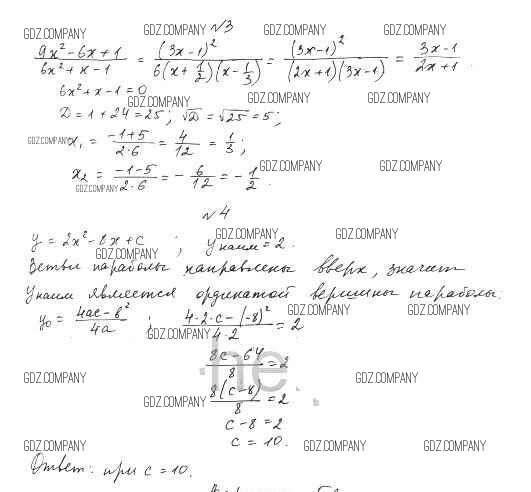 GDZ.COMPANY GDZ.COMPANY №3 GDZ.COMPANY GDZ.COMPANY
(9x²-6x+1)/(6x²+x-1) = (3x-1)²/(6(x+1/2)(x-1/3)) = (3x-1)²/((2x+1)(3x-1)) = (3x-1)/(2x+1).
6x²+x-1=0
GDZ.COMPANY GDZ.COMPANY GDZ.COMPANY
D=1+24=25; √D=√25=5;
GDZ.COMPANY x₁ = (-1+5)/(2·6) = 4/12 = 1/3;
GDZ.COMPANY GDZ.COMPANY
x₂ = (-1-5)/(2·6) = -6/12 = -1/2.
GDZ.COMPANY
№4
GDZ.COMPANY GDZ.COMPANY
y=2x²-8x+c; yнаим=2.
GDZ.COMPANY
Ветви параболы направлены вверх, значит
yнаим является ординатой вершины параболы:
GDZ.COMPANY GDZ.COMPANY
y₀ = (4ac-b²)/4a; (4·2·c-(-8)²)/(4·2) = 2
GDZ.COMPANY
(8c-64)/8=2
GDZ.COMPANY he GDZ.COMPANY
8(c-8)/8=2
GDZ.COMPANY
c-8=2
c=10.
GDZ.COMPANY GDZ.COMPANY GDZ.COMPANY
Ответ: при c=10.